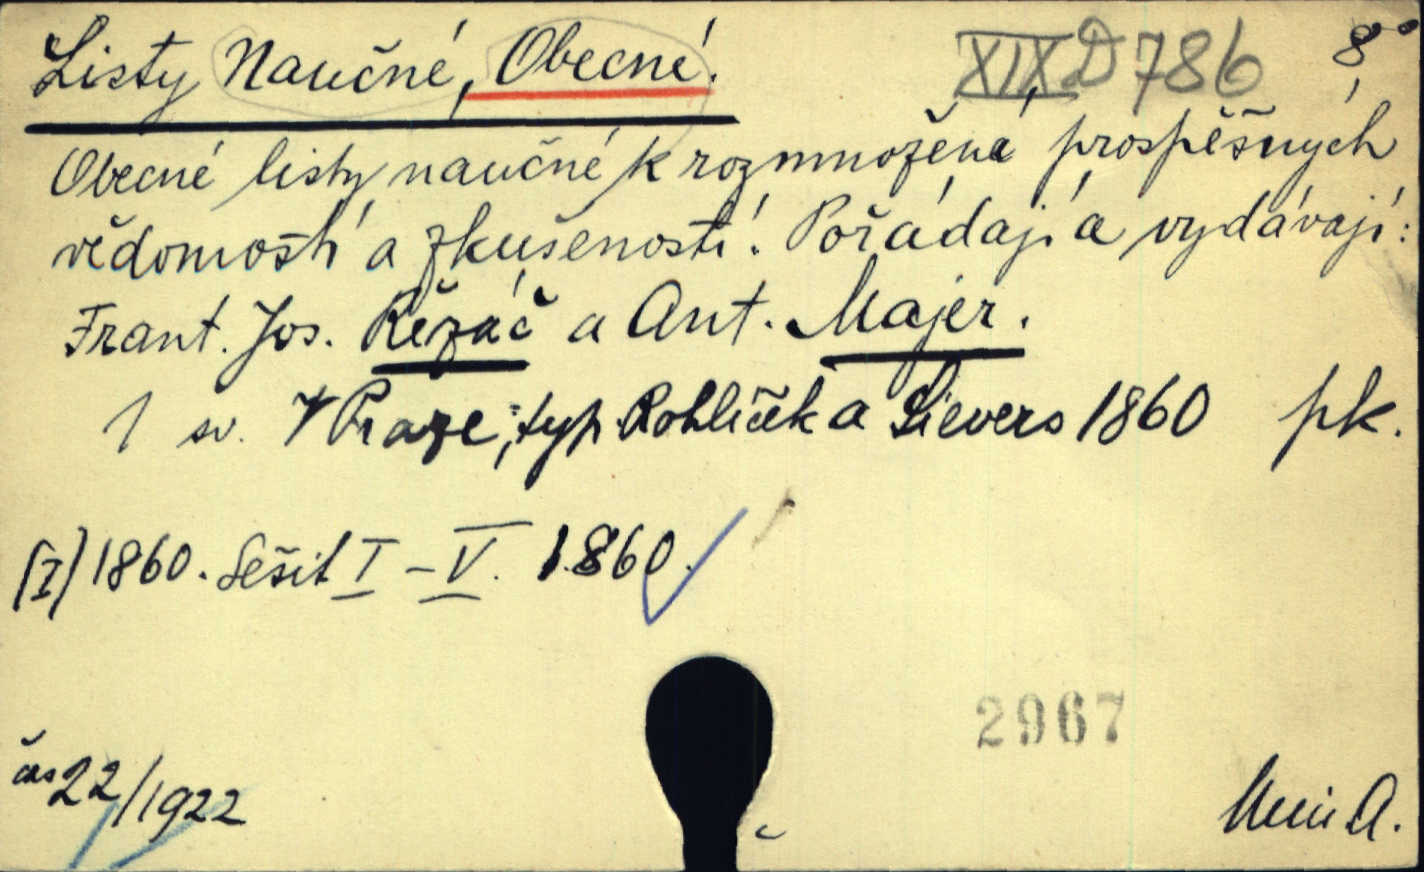 Listy Naučné, Obecné. XIX D 786 8°
Obecné listy naučné k rozmnožení prospěšných
vědomostí a zkušeností. Pořádají a vydávají:
Frant. Jos. Řezáč a Ant. Majer.
1 sv. V Praze, typ. Rohlíček a Sievers 1860 pk.
[I] 1860. Sešit I – V. 1860.
2967
čas 22/1922
A.